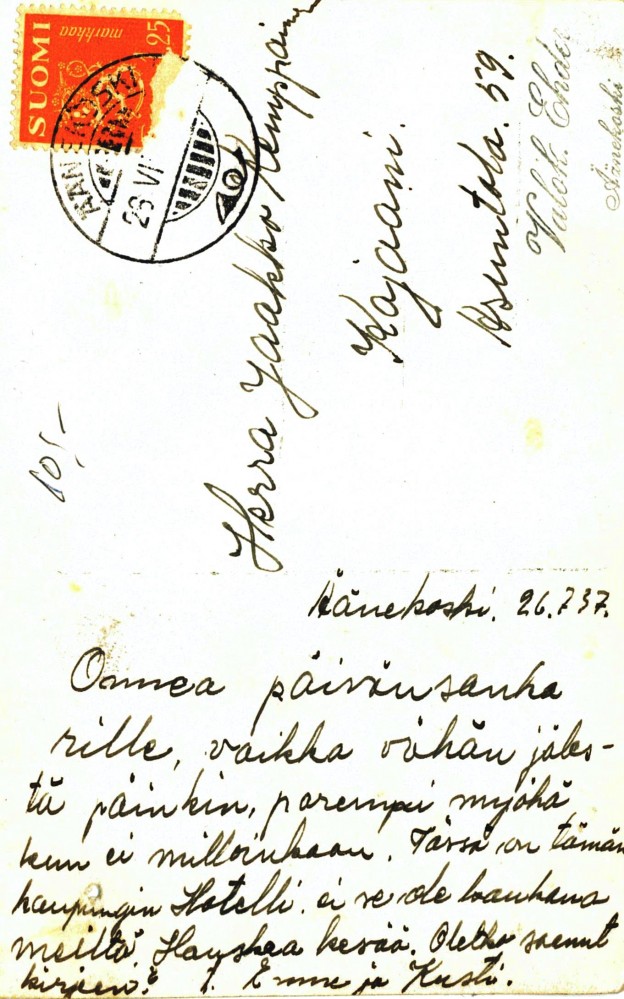 SUOMI
markkaa
25
ÄÄNEKOSKI
26 VII
Herra Jaakko Kemppainen
Kajaani.
Asuntola. 59.
Valok.
Äänekoski
80,-
Äänekoski. 26.7 37.
Onnea päivänsanka
rille, vaikka vähän jäles-
tä päinkin, parempi myöhä
kun ei milloinkaan. Tässä on tämän
kaupungin Hotelli. ei se ole kaukana
meiltä. Hauskaa kesää. Oletko saanut
kirjeen? T. Enne ja Kusti.